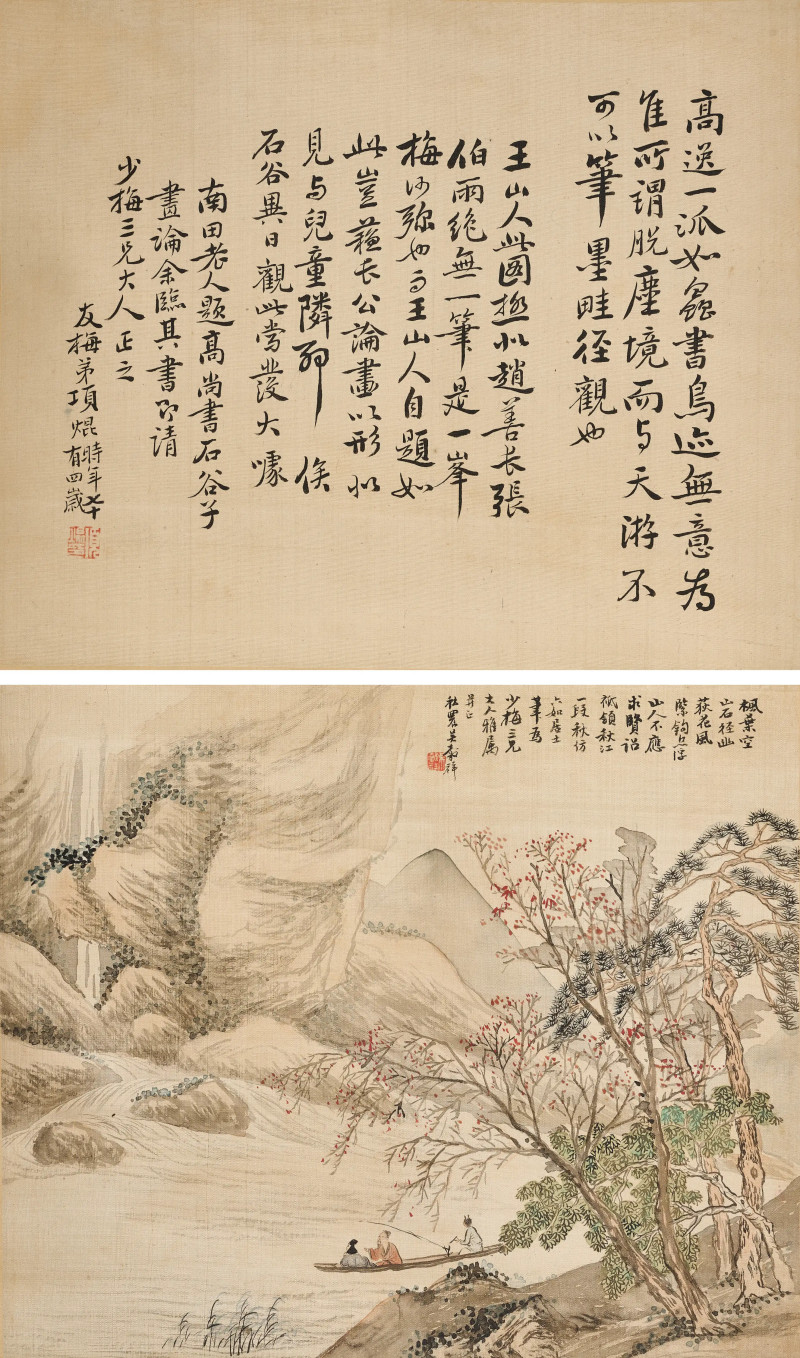 高逸一派如蟲書鳥迹無意為
佳所謂脱塵境而与天游不
可以筆墨畦徑觀也
王山人此圖極似趙善长張
伯雨絶無一筆是一峯
梅沙弥也王山人自題如
此豈蘇长公論畫以形似
見与兒童隣耶 俟
石谷異日觀此當發大噱
南田老人題高尚書石谷子
畫論余臨其書即請
少梅三兄大人正之
友梅弟項焜時年七十有四歲
楓葉空
山石徑幽
荻花風
際釣舟浮
山人不應
求賢詔
孤領秋江
一段秋仿
六如居士
筆為
少梅三兄
大人雅属
并正
秋農吴穀祥